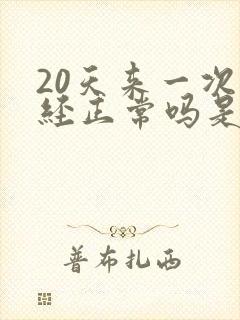 20天来一次
经正常吗是
普布扎西